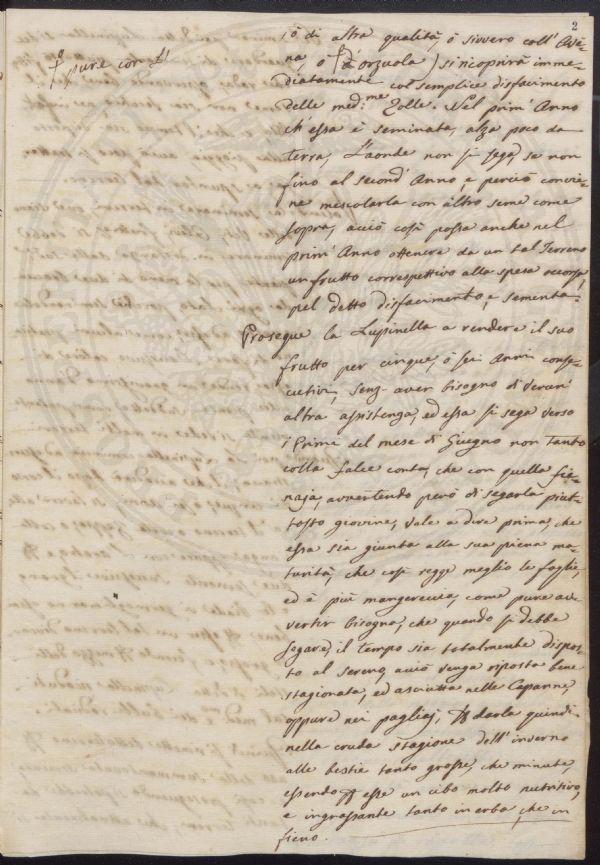 2
ò di altra qualità, ò sivvero coll' Avè-
na, ò d'orzuola) si ricoprirà imme-
diatamente col semplice disfacimento
delle med:me Zolle. Nel prim' Anno
ch' essa è seminata, alza poco da
terra, Laonde non si sega, se non
fino al second' Anno, e perciò convie-
ne mescolarla con altro seme come
sopra, acciò così possa anche nel
prim' Anno ottenere da un tal Terreno
un frutto correspettivo alla spesa occorsa,
pel detto disfacimento, e sementa.
Prosegue la Lupinella a rendere il suo
frutto per cinque, ò sei Anni conse-
cutivi, senz' aver bisogno di verun'
altra assistenza, ed essa si sega verso
i Primi del mese di Giugno non tanto
colla falce conta, che con quella fie-
naja, avvertendo però di segarla piut-
tosto giovine, vale a dire prima, che
essa sia giunta alla sua piena ma-
turità, che così regge meglio le foglie,
ed è più mangereccia, come pure av-
vertir bisogna, che quando si debbe
segare, il tempo sia totalmente dispos-
to al sereno, acciò venga riposta bene
stagionata, ed asciutta nelle Capanne,
oppure nei pagliaj, P darla quindi
nella cruda stagione dell' inverno
alle bestie tanto grosse, che minute,
essendo P esse un cibo molto nutritivo,
e ingrassante tanto in erba, che in
fieno.
ò pure con